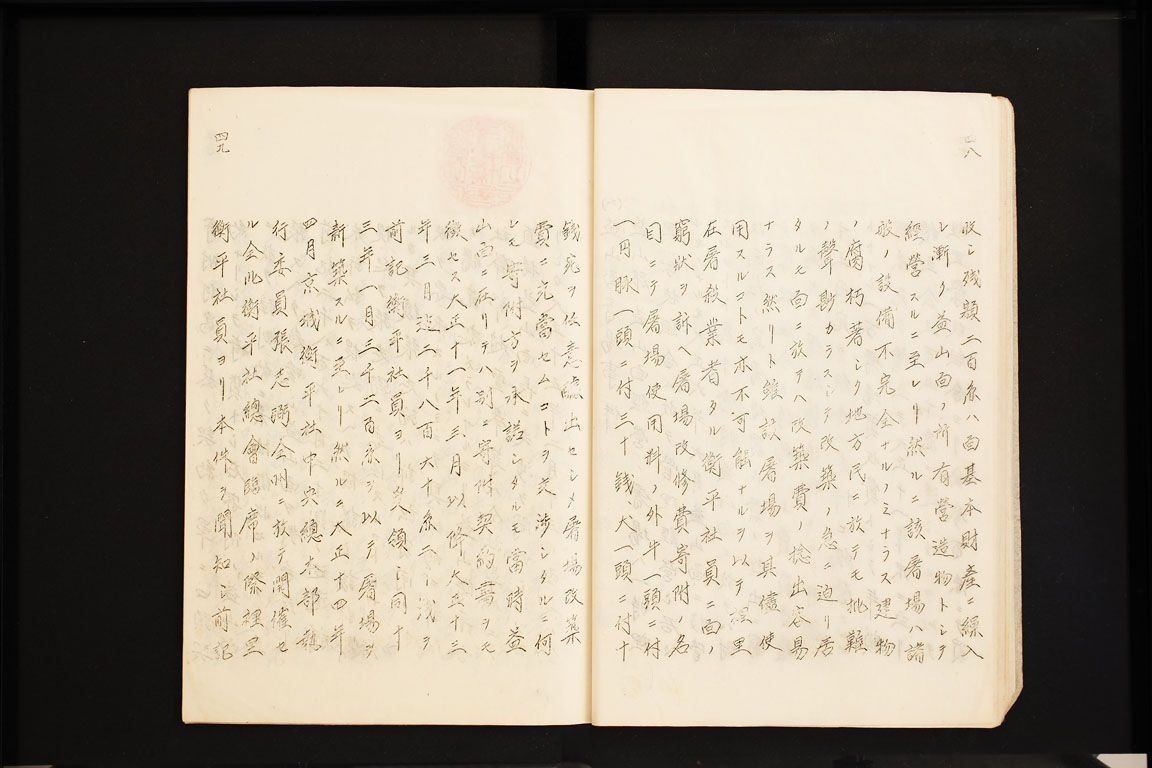 四八
収シ残額二百余ハ面基本財産ニ繰入
レ漸ク益山面ノ所有営造物トシヲ
経営スルニ至レリ然ルニ該屠場ハ諸
般ノ設備不完全ナルノミナラス建物
ノ腐朽著シク地方民ニ於テモ批難
ノ聲尠カラスシテ改築ノ急ニ迫リ居
タルモ面ニ於テハ改築費ノ捻出容易
ナラス然リト雖該屠場ヲ其儘使
用スルコトモ亦不可能ナルヲ以テ裡里
在屠殺業者タル衡平社員ニ面ノ
窮状ヲ訴ヘ屠場改修費寄附ノ名
目ニテ屠場使用料ノ外牛一頭ニ付
一円豚一頭ニ付三十銭、犬一頭ニ付十
四九
銭宛ヲ任意醵出セシメ屠場改築
費ニ充當セムコトヲ交渉シタルニ何
レモ寄附方ヲ承諾シタルモ當時益
山面ニ在リテハ別ニ寄附契約書ヲモ
徴セス大正十一年三月以降大正十三
年三月迄二千八百六十余円ヲ
前記衡平社員ヨリ領シ同十
三年一月三千二百余ヲ以テ屠場ヲ
新築スルニ至レリ然ルニ大正十四年
四月京城衡平社中央總本部執
行委員張志弼全州ニ於テ開催セ
ル全北衡平社總會臨席ノ際裡里
衡平社員ヨリ本件ヲ聞知シ前記